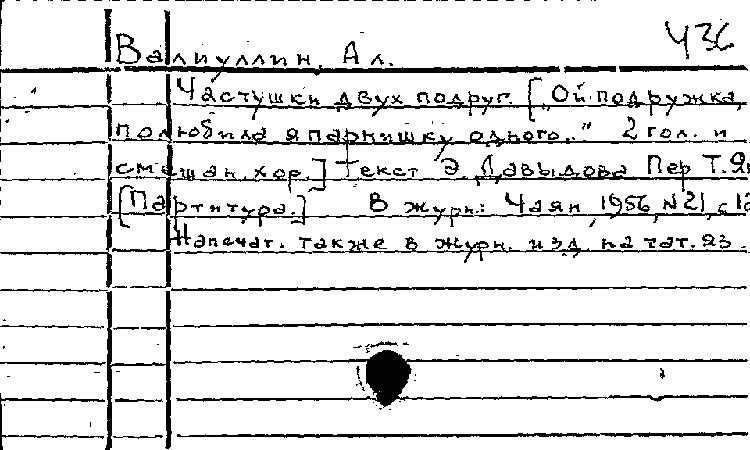 Ч36
Валиуллин, Ал.
Частушки двух подруг. [„Ой подружка,
полюбила я парнишку одного.." 2 гол. и
смешан. хор.] Текст Э. Давыдова Пер Т.
[Партитура.] В журн: Чаян, 1956, №21, с.
Напечат. также в журн. изд. на тат. яз.